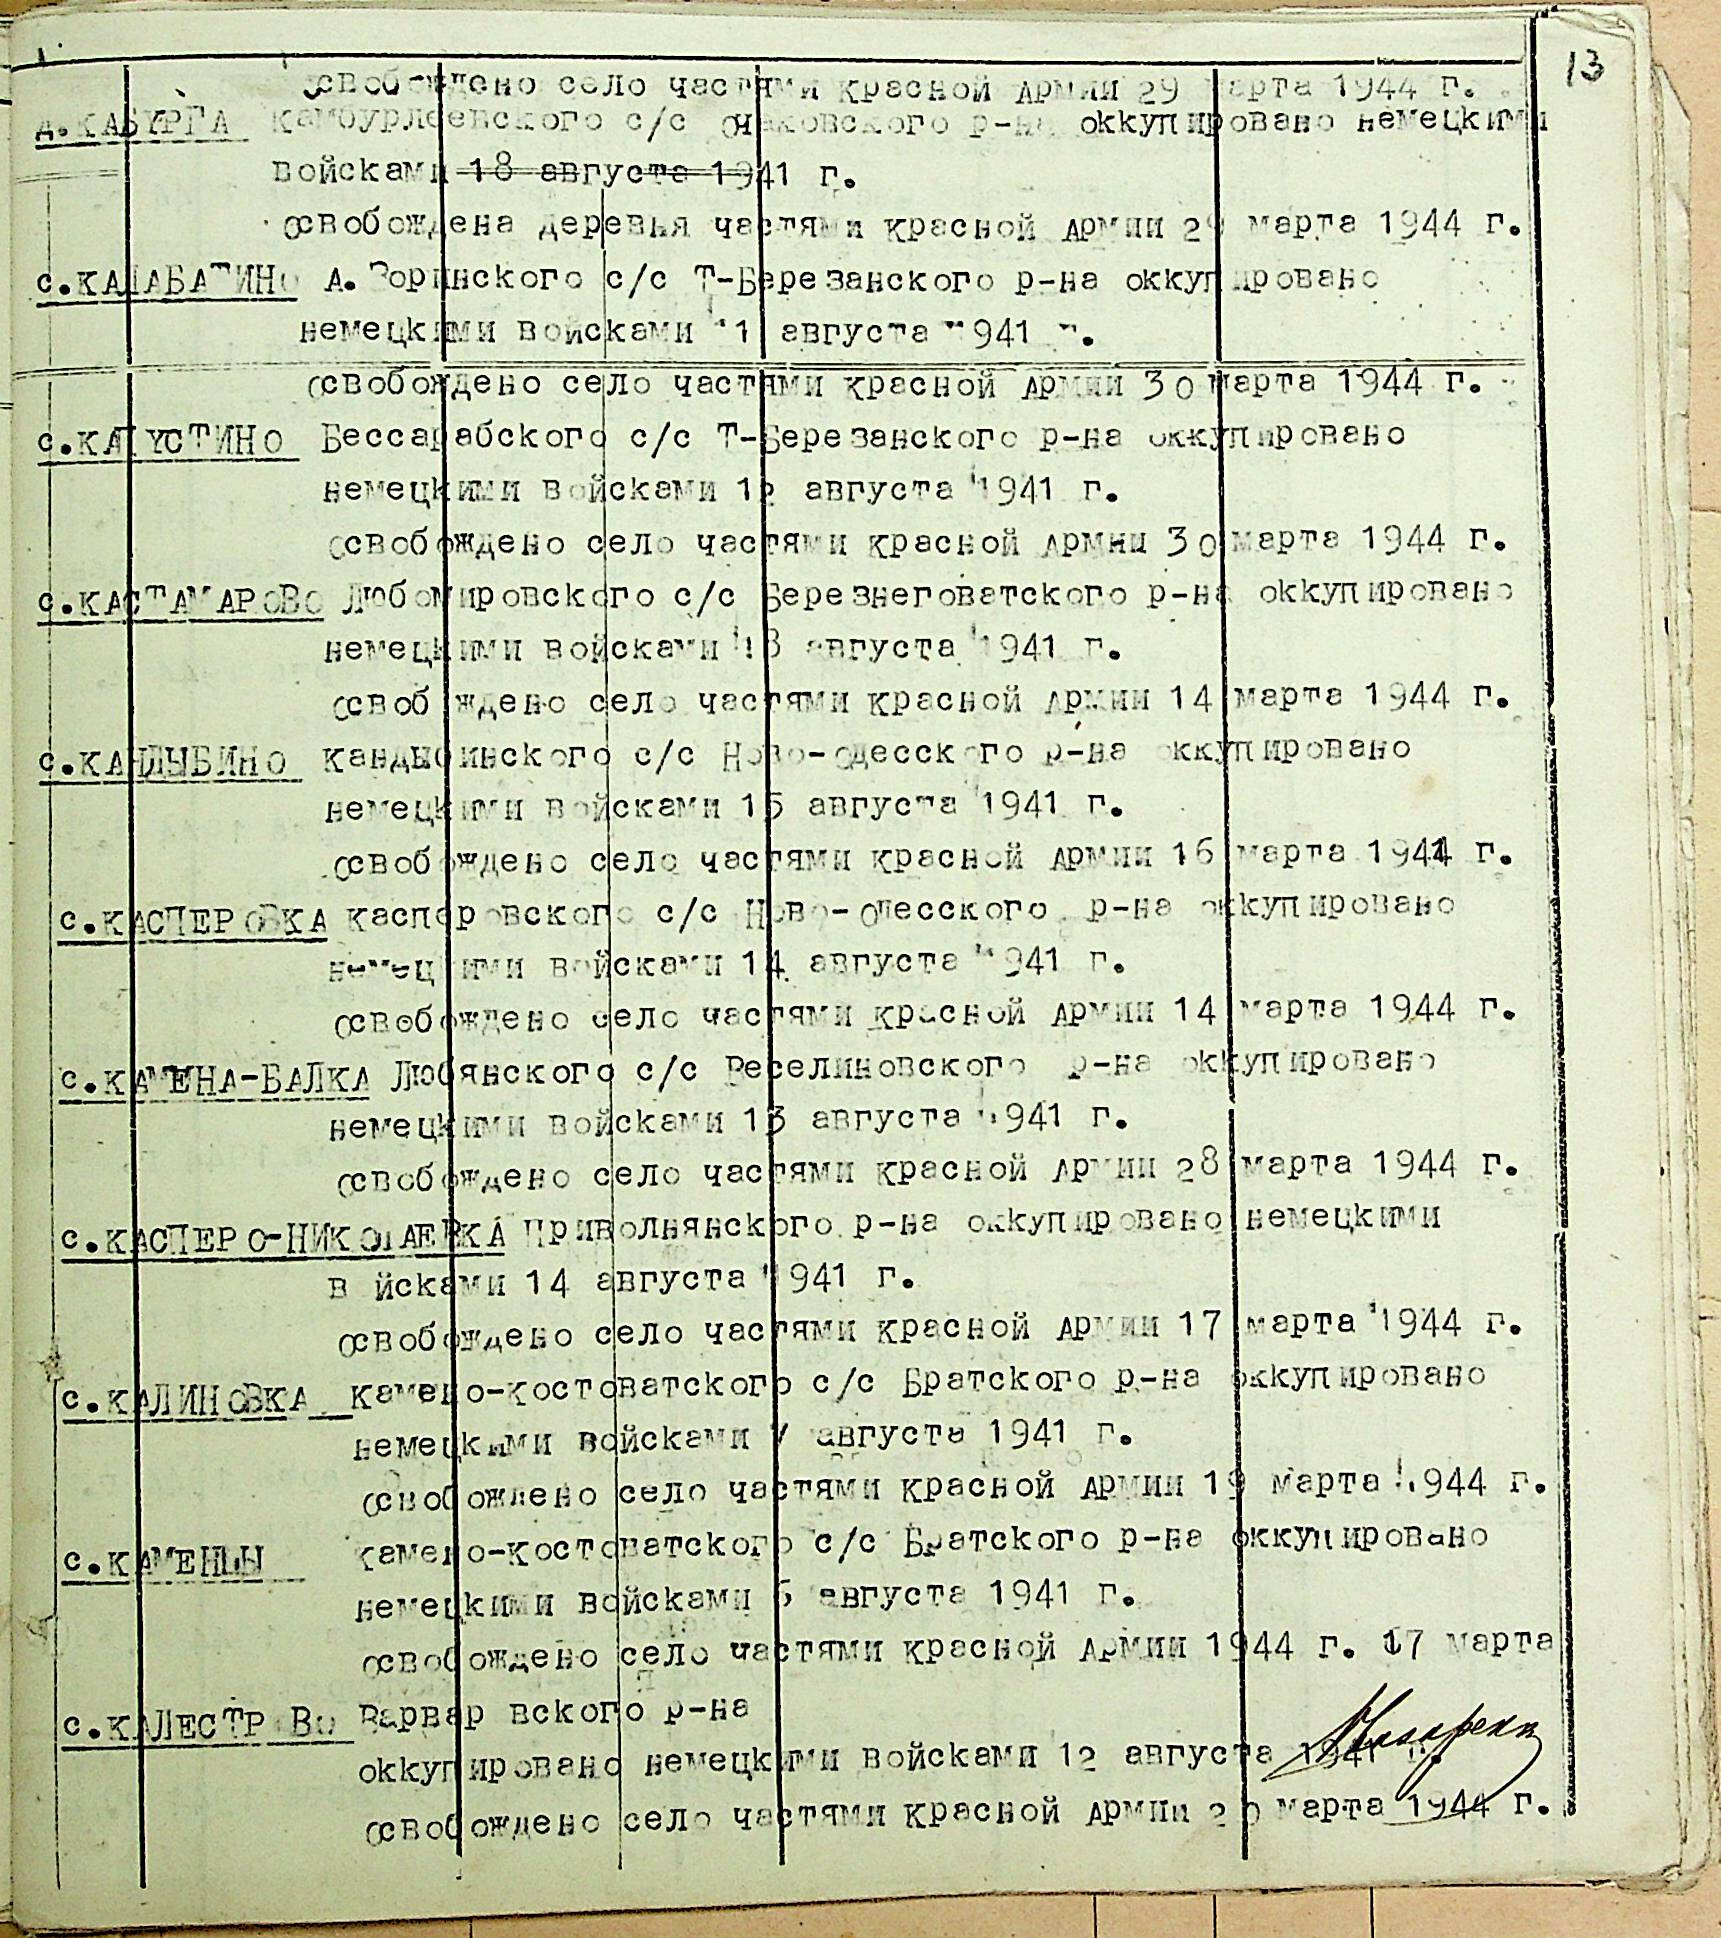 13
освобождено село частями красной Армии 29 марта 1944 г.
д.КАБУРГА Камбурлеевского с/с Очаковского р-на оккупировано немецкими
войсками 18 августа 1941 г.
освобождена деревья частями красной Армии 29 марта 1944 г.
с.КАЛАБАТИНО А. Зоринского с/с Т-Березанского р-на оккупировано
немецкими войсками 11 августа 1941 г.
освобождено село частями красной Армии 30 марта 1944 г.
с.КАПУСТИНО Бессарабского с/с Т-Березанского р-на оккупировано
немецкими войсками 12 августа 1941 г.
освобождено село частями красной Армии 30 марта 1944 г.
с.КАСТАМАРОВО Любомировского с/с Березнеговатского р-на оккупировано
немецкими войсками 18 августа 1941 г.
освобождено село частями красной Армии 14 марта 1944 г.
с.КАНДЫБИНО Кандыбинского с/с Ново-Одесского р-на оккупировано
немецкими войсками 15 августа 1941 г.
освобождено село частями красной Армии 16 марта 1944 г.
с.КАСПЕРОВКА Касперовского с/с Ново-Одесского р-на оккупировано
немецкими войсками 14 августа 1941 г.
освобождено село частями красной Армии 14 марта 1944 г.
с.КАМЕНА-БАЛКА Любянского с/с Веселиновского р-на оккупировано
немецкими войсками 13 августа 1941 г.
освобождено село частями красной Армии 28 марта 1944 г.
с.КАСПЕРО-НИКОЛАЕВКА Приволнянского р-на оккупировано немецкими
в йсками 14 августа 1941 г.
освобождено село частями красной Армии 17 марта 1944 г.
с.КАЛИНОВКА Камено-костоватского с/с Братского р-на оккупировано
немецкими войсками 7 августа 1941 г.
освобождено село частями красной Армии 19 марта 1944 г.
Камено-костоватского с/с Братского р-на оккупировано
немецкими войсками 5 августа 1941 г.
освобождено село частями красной Армии 1944 г. 17 марта
с.КАЛЕСТРОВО Варвар вского р-на
оккупировано немецкими войсками 12 августа 1941 г.
освобождено село частями красной Армии 20 марта 1944 г.